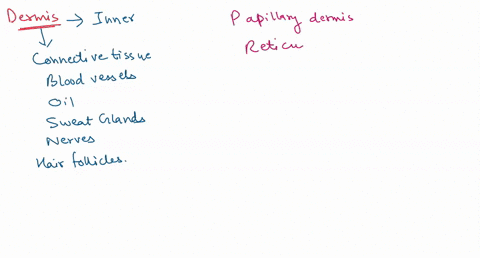 Dermis → Inner
Connective tissue
Blood vessels
Oil
Sweat Glands
Nerves
Hair follicles.
Papillary dermis
Reticu